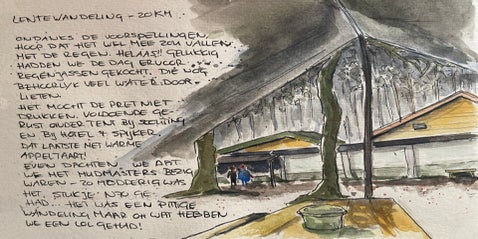 LENTEWANDELING - 20 KM
ONDANKS DE VOORSPELLINGEN,
HOOP DAT HET WEL MEE ZOU VALLEN
MET DE REGEN. HELAAS!! GELUKKIG
HADDEN WE DE DAG ERVOOR
REGENJASSEN GEKOCHT. DIE NOG
BEHOORLIJK VEEL WATER DOOR-
LIETEN.
HET MOCHT DE PRET NIET
DRUKKEN. VOLDOENDE GE-
RUST ONDER TENT BIJ
EN BIJ HOTEL & SPIJKER.
DAT LAATSTE MET WARME
APPELTAART!
EVEN DACHTEN WE DAT
WE MET MUDMASTERS BEZIG
WAREN - ZO MODDERIG WAS
HET 'STUKJE' NOG GE-
HAD... HET WAS EEN PITTIGE
WANDELING MAAR OH WAT HEBBEN
WE EEN LOL GEHAD!